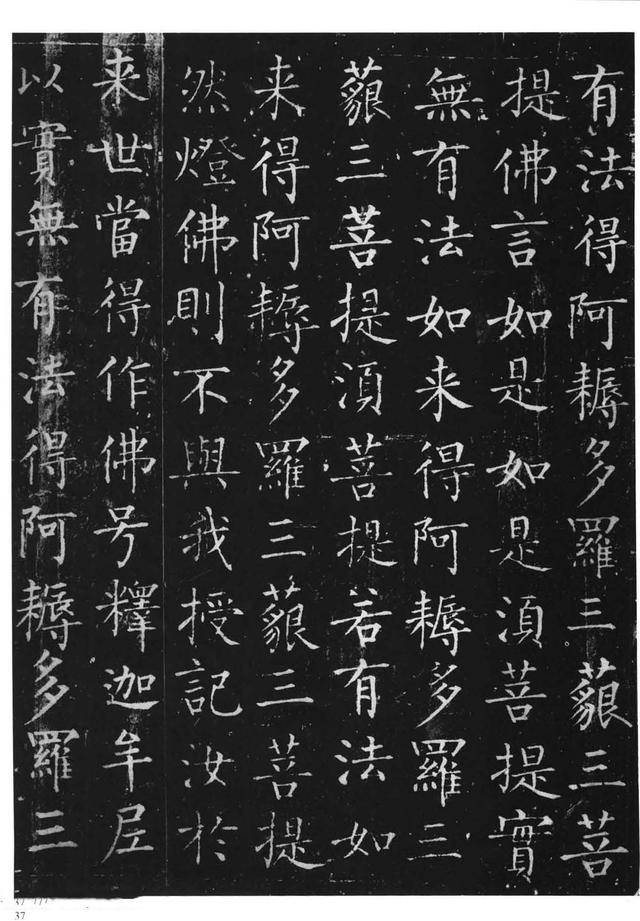 有法得阿耨多羅三藐三菩
提佛言如是如是湏菩提實
無有法如来得阿耨多羅三
藐三菩提湏菩提若有法如
来得阿耨多羅三藐三菩提
然燈佛則不與我授記汝於
来世當得作佛号釋迦牟尼
以實無有法得阿耨多羅三
37